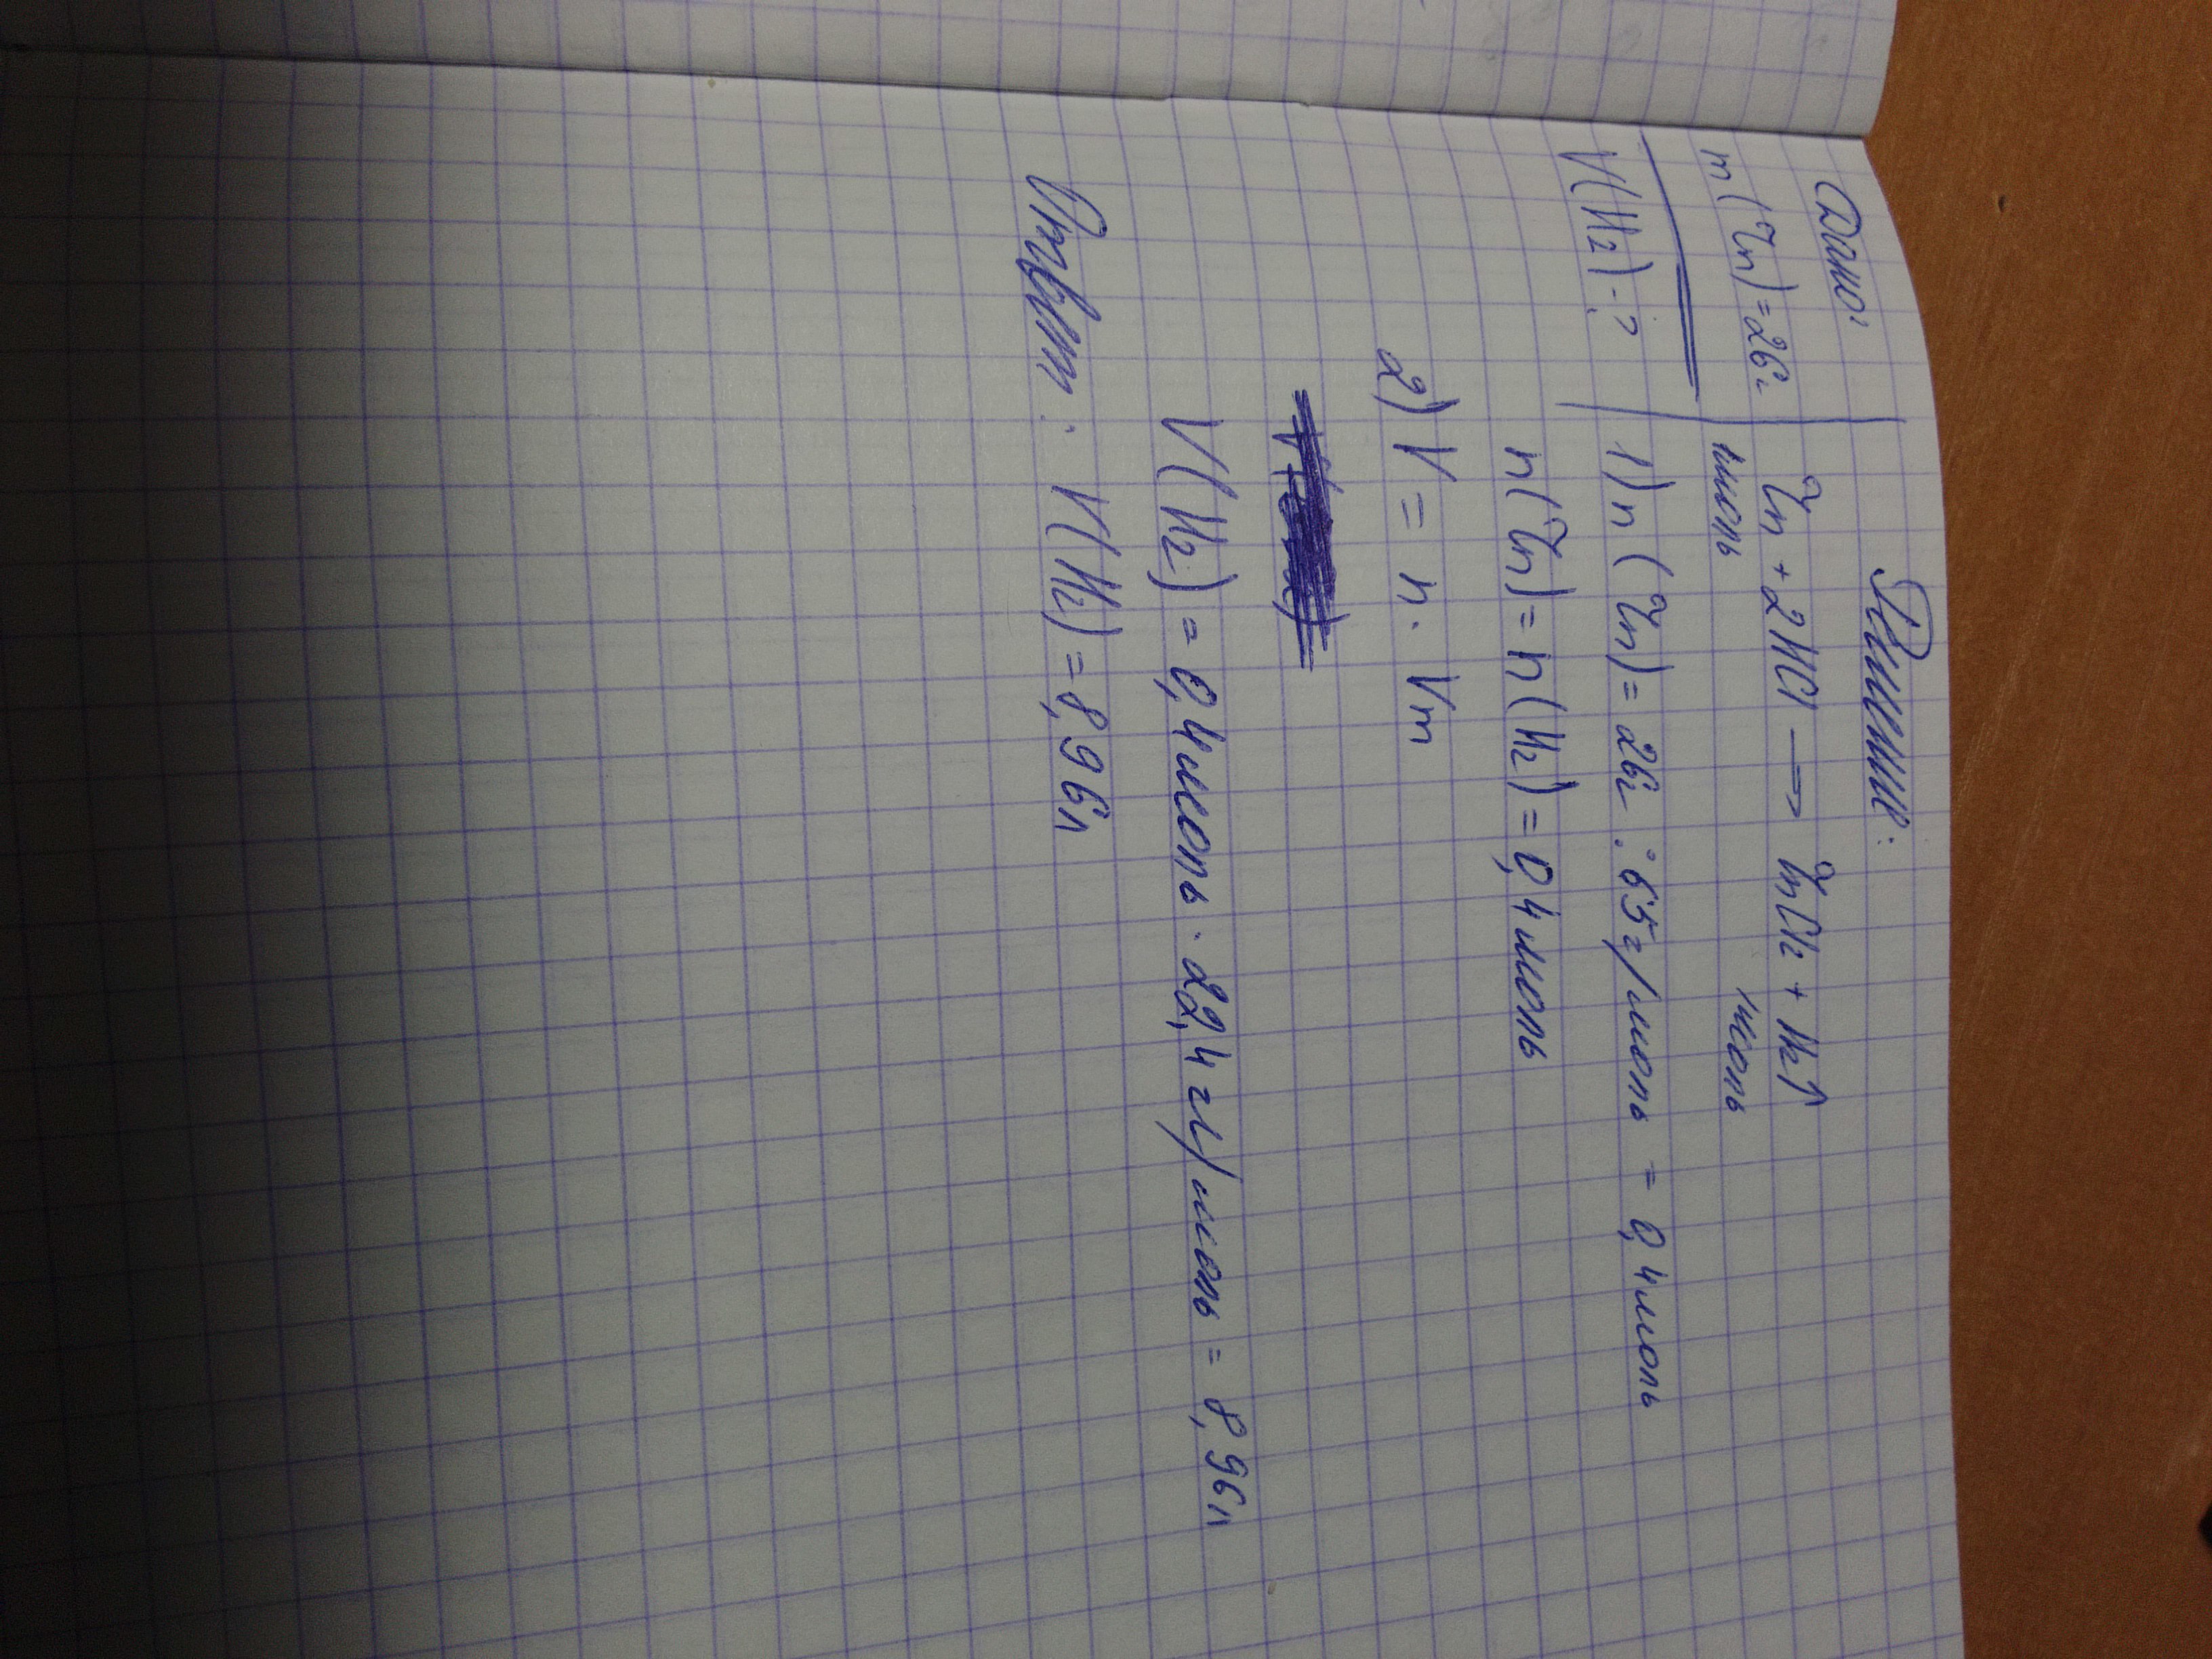 Дано:
m(Zn)=26г
V(H2)-?
Решение:
Zn + 2HCl → ZnCl2 + H2↑
1моль 1моль
1) n(Zn) = 26г : 65г/моль = 0,4моль
n(Zn) = n(H2) = 0,4моль
2) V = n · Vm
V(H2) = 0,4моль · 22,4 /моль = 8,96л
Ответ: V(H2) = 8,96л